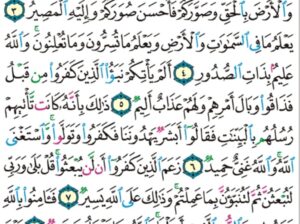 وَالْأَرْضَ بِالْحَقِّ وَصَوَّرَكُمْ فَأَحْسَنَ صُوَرَكُمْ وَإِلَيْهِ الْمَصِيرُ ٣
يَعْلَمُ مَا فِي السَّمَٰوَٰتِ وَالْأَرْضِ وَيَعْلَمُ مَا تُسِرُّونَ وَمَا تُعْلِنُونَ وَاللَّهُ
عَلِيمٌ بِذَاتِ الصُّدُورِ ٤ أَلَمْ يَأْتِكُمْ نَبَؤُا الَّذِينَ كَفَرُوا مِن قَبْلُ
فَذَاقُوا وَبَالَ أَمْرِهِمْ وَلَهُمْ عَذَابٌ أَلِيمٌ ٥ ذَٰلِكَ بِأَنَّهُ كَانَت تَّأْتِيهِمْ
رُسُلُهُم بِالْبَيِّنَٰتِ فَقَالُوا أَبَشَرٌ يَهْدُونَنَا فَكَفَرُوا وَتَوَلَّوا وَّاسْتَغْنَى
اللَّهُ وَاللَّهُ غَنِيٌّ حَمِيدٌ ٦ زَعَمَ الَّذِينَ كَفَرُوا أَن لَّن يُبْعَثُوا قُلْ بَلَىٰ وَرَبِّي
لَتُبْعَثُنَّ ثُمَّ لَتُنَبَّؤُنَّ بِمَا عَمِلْتُمْ وَذَٰلِكَ عَلَى اللَّهِ يَسِيرٌ ٧ فَـَٔامِنُوا بِاللَّهِ